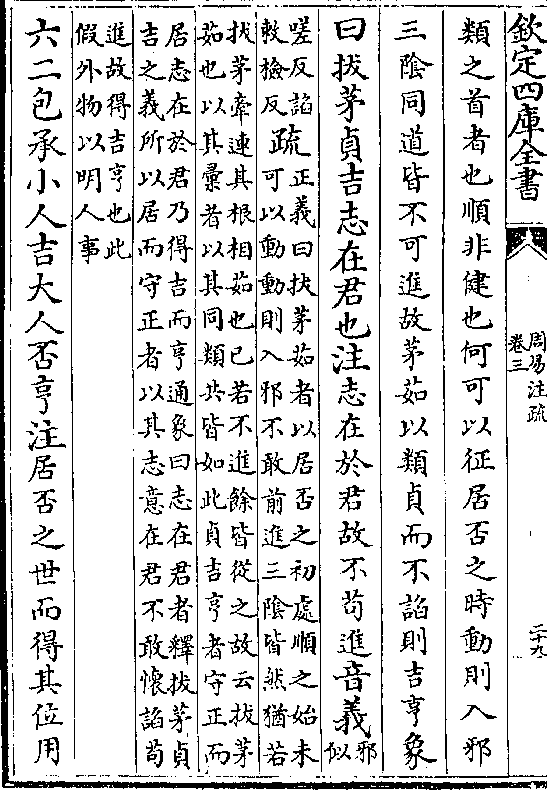 欽定四庫全書
周易注疏
卷三
二十九
類之首者也順非健也何可以征居否之時動則入邪
三陰同道皆不可進故茅茹以類貞而不諂則吉亨象
曰拔茅貞吉志在君也注志在於君故不苟進音義邪
似
嗟反諂
敕檢反
疏正義曰拔茅茹者以居否之初處順之始未
可以動動則入邪不敢前進三陰皆然猶若
拔茅牽連其根相茹也已若不進餘皆從之故云拔茅
茹也以其彙者以其同類共皆如此貞吉亨者守正而
居志在於君乃得吉而亨通象曰志在君者釋拔茅貞
吉之義所以居而守正者以其志意在君不敢懷諂苟
進故得吉亨也此
假外物以明人事
六二包承小人吉大人否亨注居否之世而得其位用